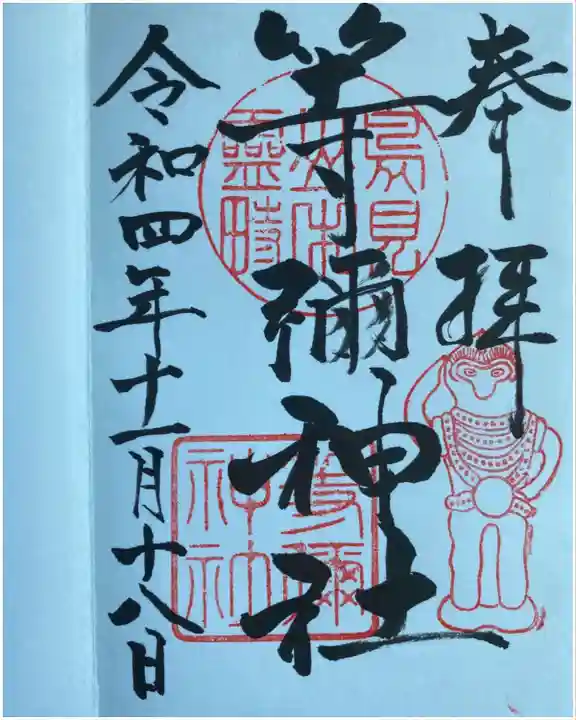 奉拝
等彌神社
令和四年十一月十八日
鳥見
山中
霊畤
等彌
神社